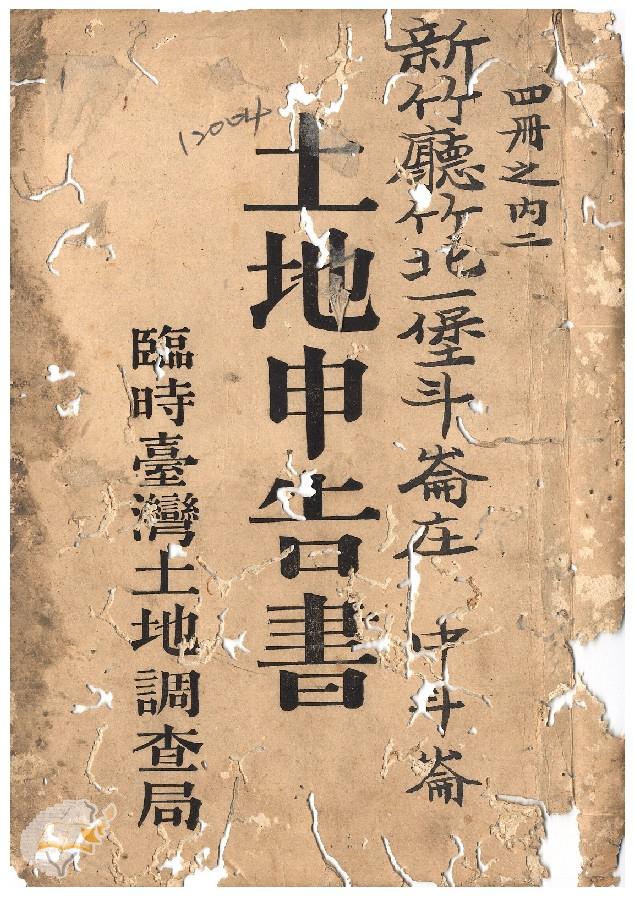 四冊之内二
新竹廳竹北一堡斗崙庄 中斗崙
土地申告書
臨時臺灣土地調查局
12004